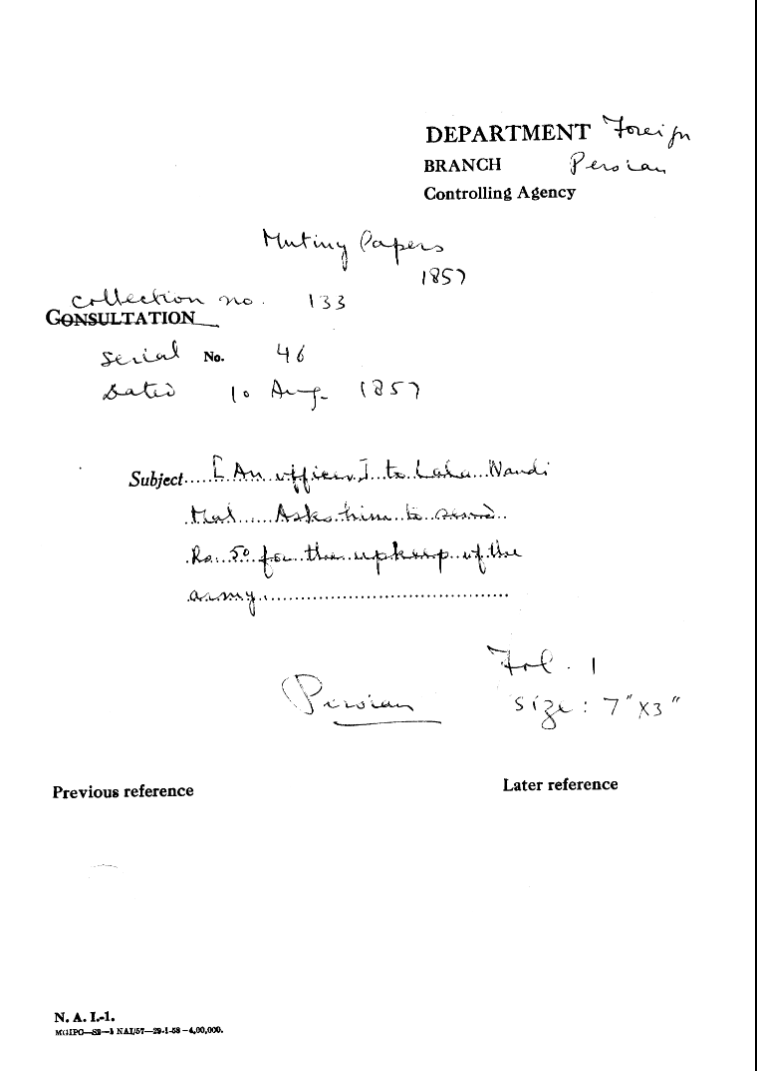 DEPARTMENT Foreign
BRANCH Persian
Controlling Agency
Mutiny Papers
1857
Collection no. 133
CONSULTATION
Serial No. 46
Dated 10 Aug. 1857
Subject.....[An officer] to Lala Nandi
Mal.....Asks him to send
Rs. 50 for the upkeep of the
army.......................................
Fol. 1
Persian
Size: 7" X3"
Previous reference
Later reference
N. A. I.-1.
MGIPC—S3—1 NAI/57—29-1-58—4,00,000.